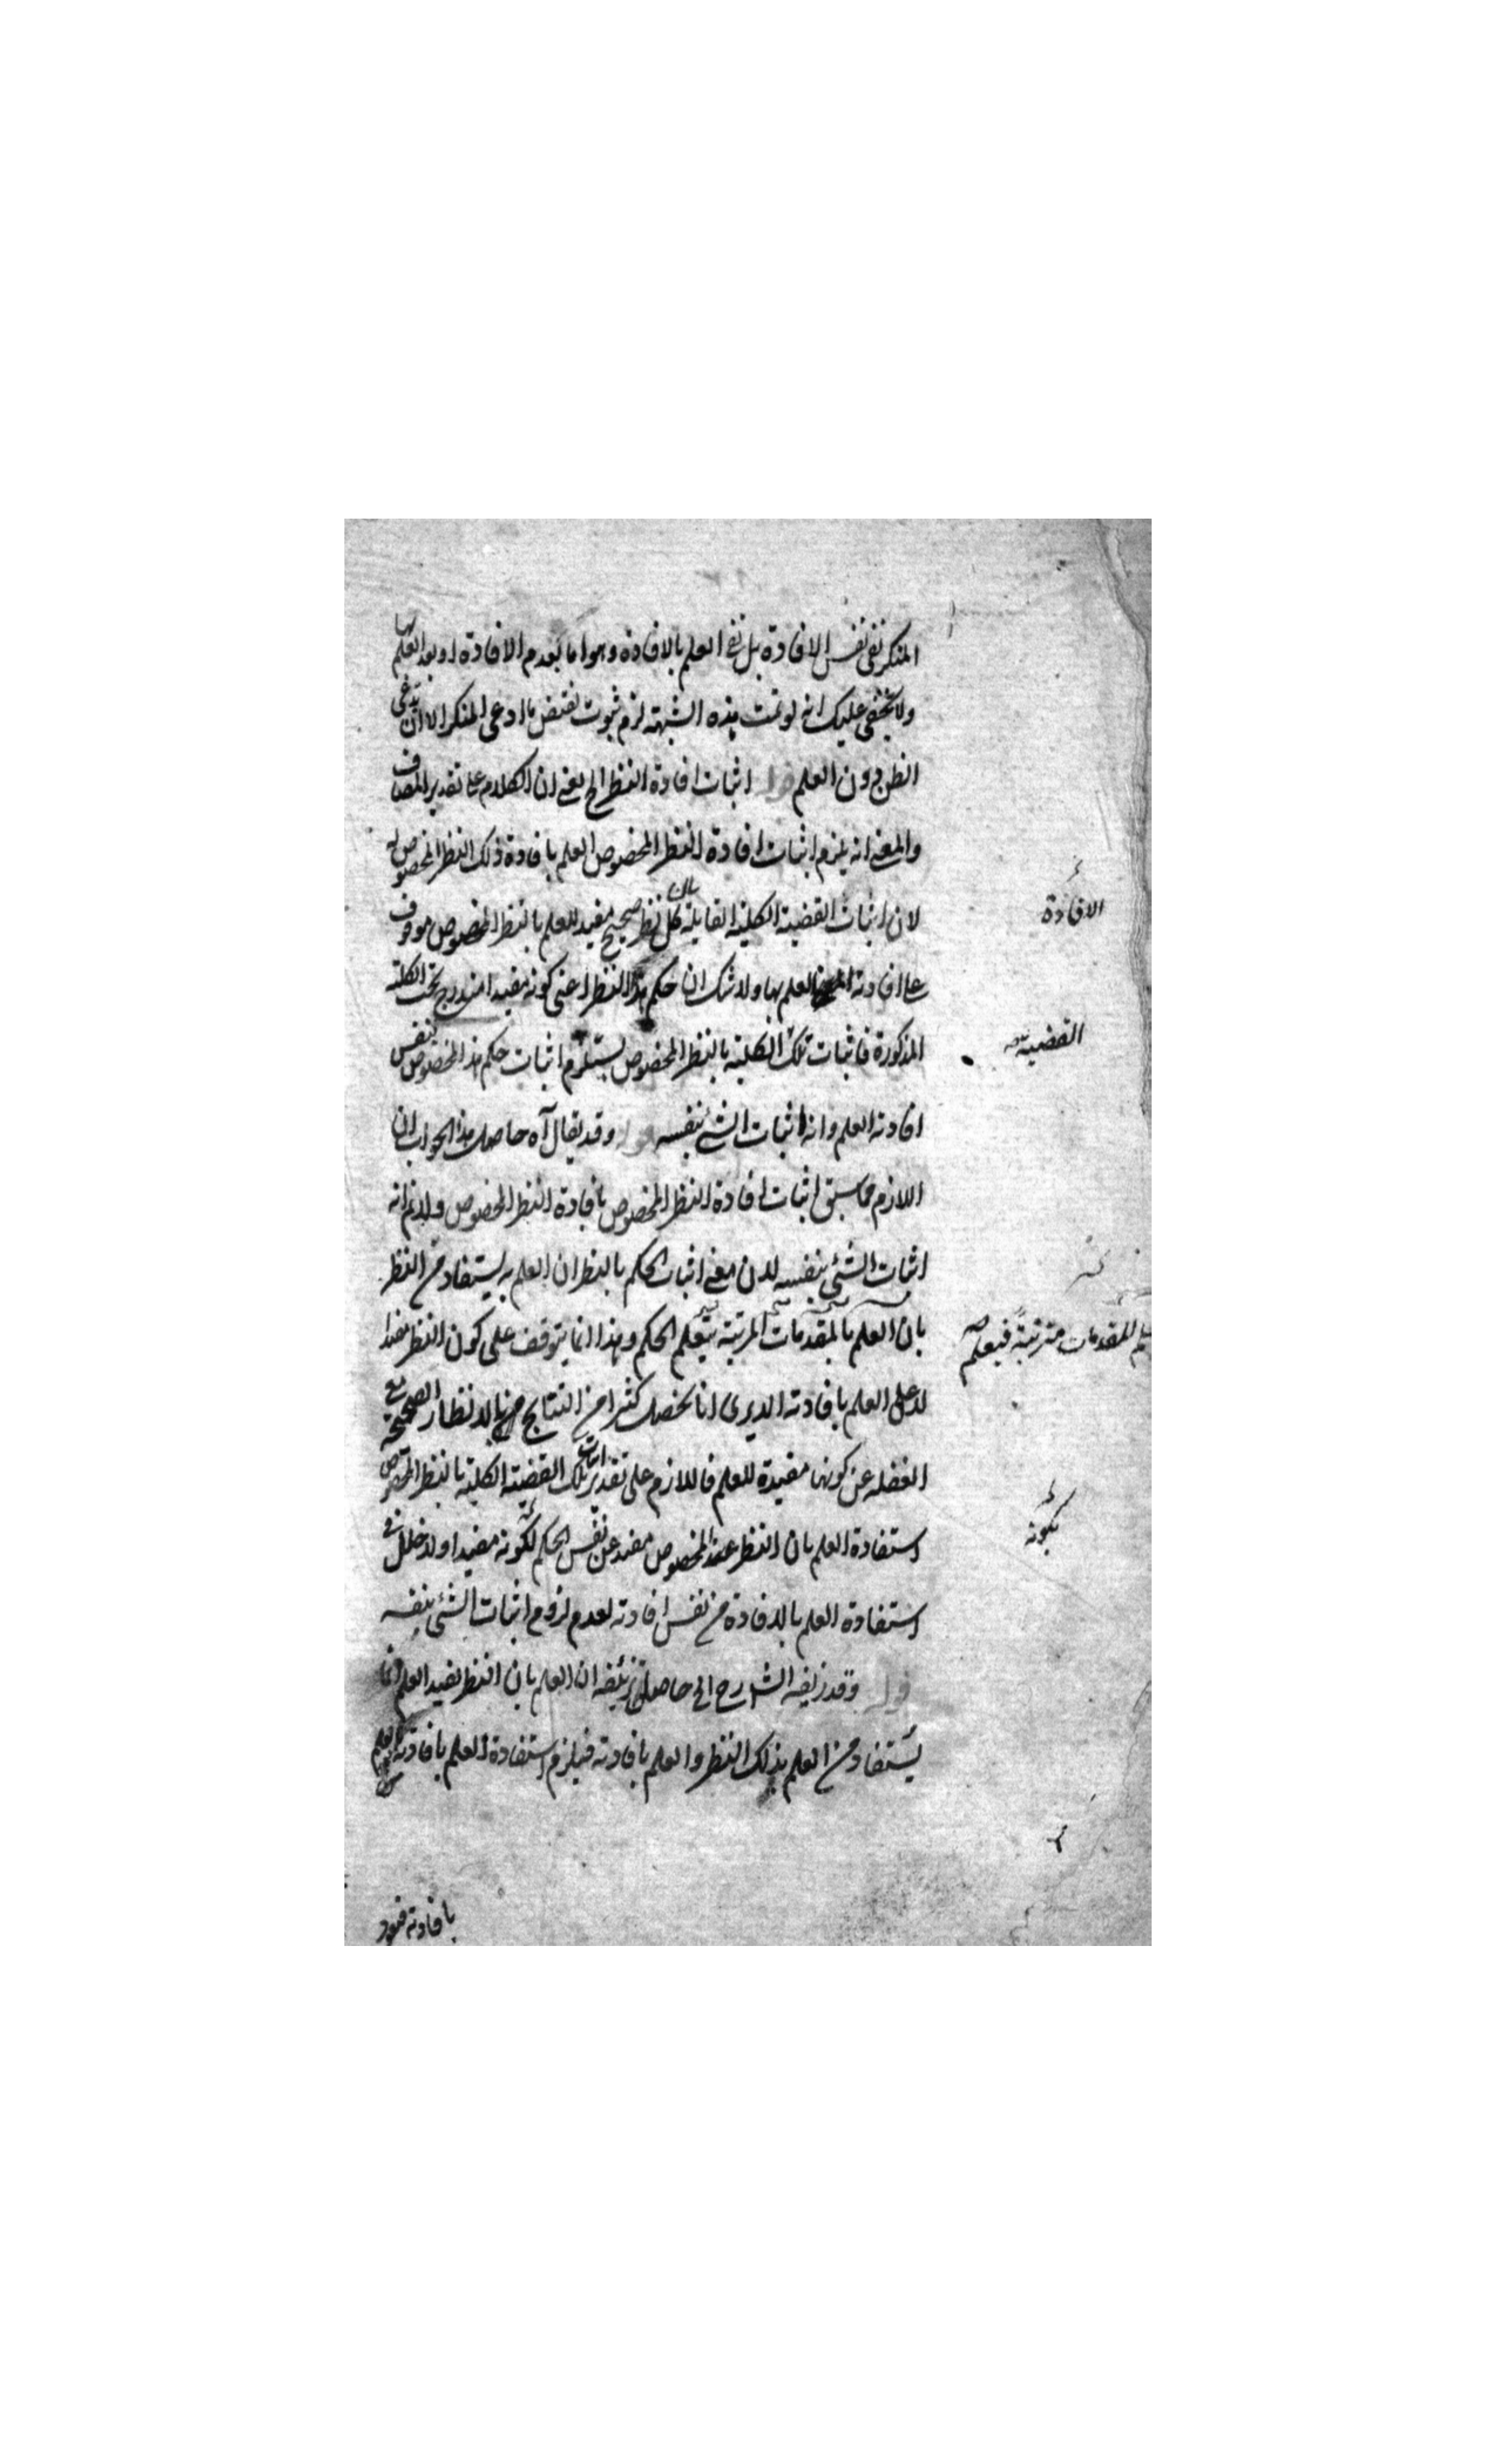 المنكر نفى نفس الافادة بل نفى العلم بالافادة وهو اما بعدم الافادة او بعد العلم بها
ولا يخفى عليك انه لو تمت هذه الشبهة لزم ثبوت نقيض ما ادعى المنكر الا ان يدعى
الظن دون العلم قوله اثبات افادة النظر الخ يعنى ان الكلام على تقدير المضاف
والمعنى انه يلزم اثبات افادة النظر المخصوص العلم بافادة ذلك النظر المخصوص
لان اثبات القضية الكلية القايلة بان كل نظر صحيح مفيد للعلم بالنظر المخصوص موقوف
على افادته العلم بها ولا شك ان حكم هذا النظر اعنى كونه مفيدا مندرج تحت الكلية
المذكورة فاثبات تلك الكلية بالنظر المخصوص يستلزم اثبات حكم هذا المخصوص بنفس
افادته العلم وانه اثبات الشئ بنفسه قوله وقد يقال آه حاصل هذا الجواب ان
اللازم مما سبق اثبات افادة النظر المخصوص بافادة النظر المخصوص ولانم انه
اثبات الشئ بنفسه لان معنى اثبات الحكم بالنظر ان العلم به يستفاد من النظر
بان العلم بالمقدمات المرتبة يتعلم الحكم وهذا انما يتوقف على كون النظر مفيدا
لا على العلم بافادته الا يرى انا نحصل كثيرا من النتايج بالانظار الصحيحة مع
الغفلة عن كونها مفيدة للعلم فاللازم على تقدير اثبات تلك القضية الكلية بالنظر المخصوص
استفادة العلم بان النظر المخصوص مفيد عن نفس الحكم لكونه مفيدا ولا خلل فى
استفادة العلم بالافادة من نفس افادته لعدم لزوم اثبات الشئ بنفسه
قوله وقد زيفه الشارح الخ حاصل تزييفه ان العلم بان النظر يفيد العلم انما
يستفاد من العلم بذلك النظر والعلم بافادته فيلزم استفادة العلم بافادته العلم
الافادة
القضية
للمقدمات مترتبة فيعلم
بكونه
بافادته